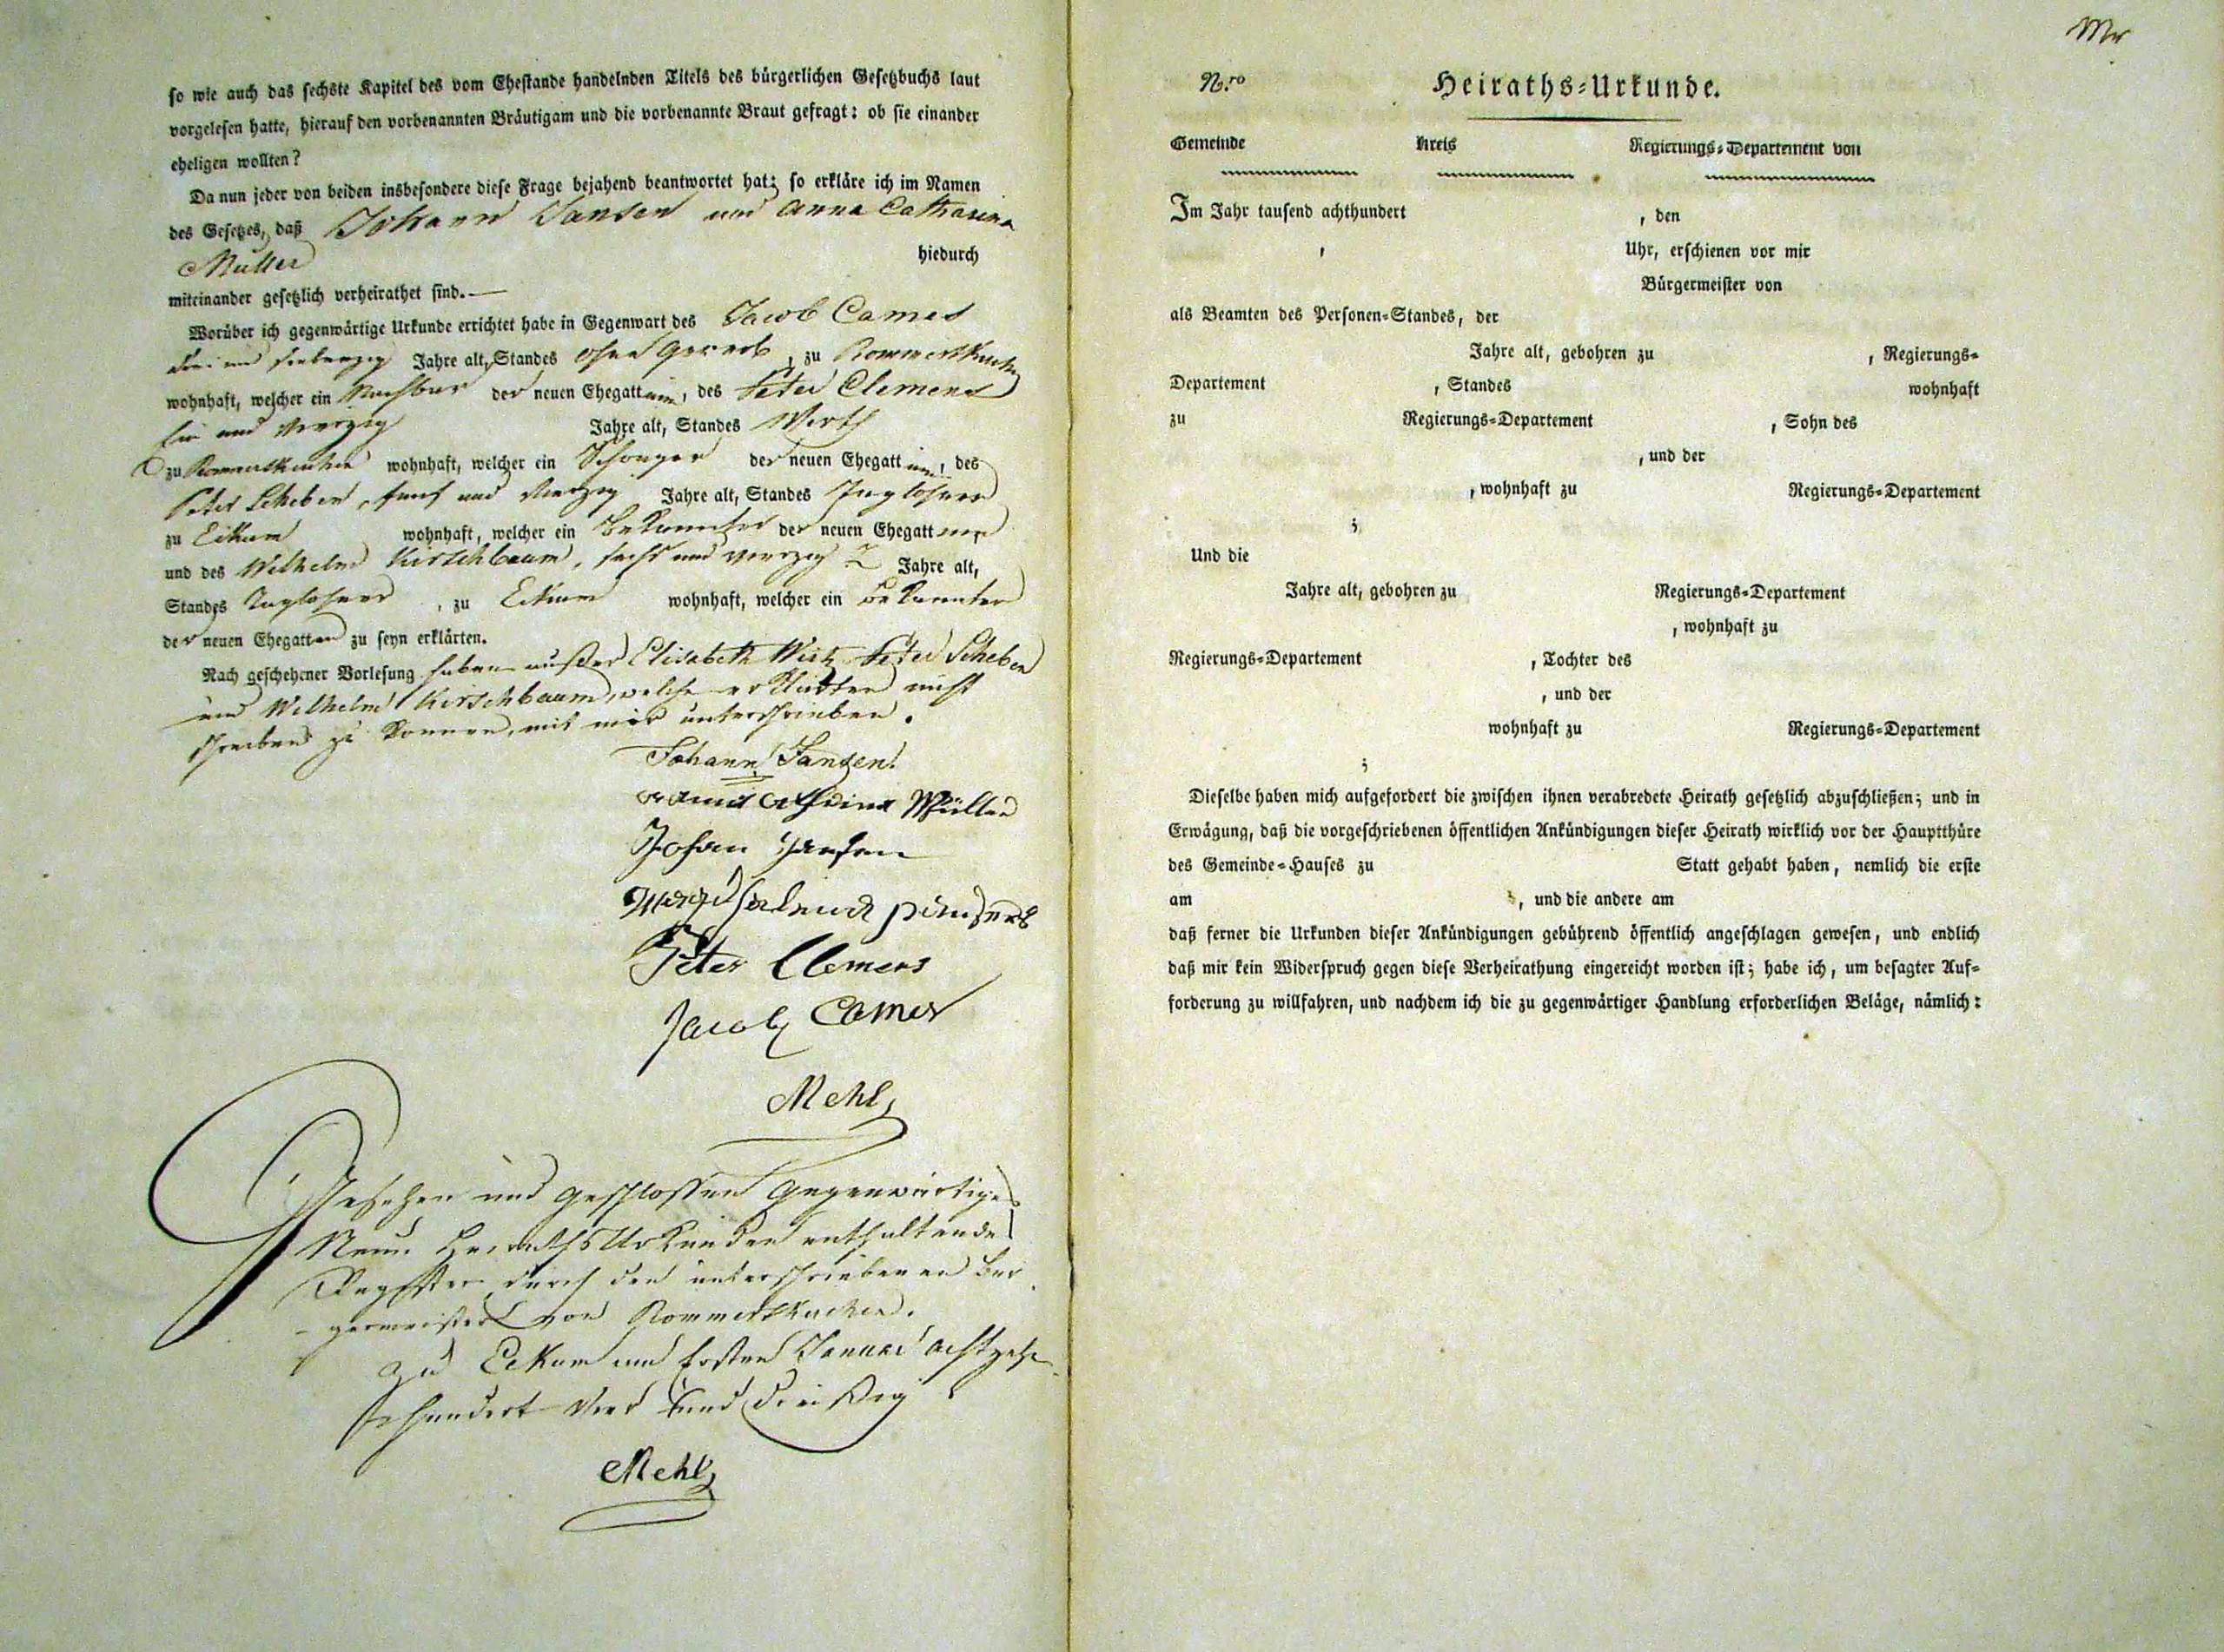 so wie auch das sechste Kapitel des vom Ehestande handelnden Titels des bürgerlichen Gesetzbuchs laut
vorgelesen hatte, hierauf den vorbenannten Bräutigam und die vorbenannte Braut gefragt: ob sie einander
eheligen wollten?
Da nun jeder von beiden insbesondere diese Frage bejahend beantwortet hat; so erkläre ich im Namen
des Gesetzes, daß Johann Jansen und Anna Catharina
Müller hiedurch
miteinander gesetzlich verheirathet sind.—
Worüber ich gegenwärtige Urkunde errichtet habe in Gegenwart des Jacob Cames
drei und siebenzig Jahre alt, Standes ohne Gewerb, zu Rommerskirchen
wohnhaft, welcher ein Nachbar der neuen Ehegattinn, des Peter Clemens
Ein und vierzig Jahre alt, Standes Wirth
zu Rommerskirchen wohnhaft, welcher ein Schwager der neuen Ehegattinn, des
Peter Scheben, fünf und vierzig Jahre alt, Standes Taglöhner
zu Eckum wohnhaft, welcher ein Bekannter der neuen Ehegatten
und des Wilhelm Kirschbaum, sechs und vierzig Jahre alt,
Standes Taglöhner, zu Eckum wohnhaft, welcher ein Bekannter
der neuen Ehegatten zu seyn erklärten.
Nach geschehener Vorlesung haben außer Elisabeth Wirtz Peter Scheben
und Wilhelm Kirschbaum, welche erklärten nicht
schreiben zu können, mit mir unterschrieben.
Johann Jansen
Anna Catharina Müller
Johan Jansen
Peter Clemens
Jacob Cames
Mehl
Gesehen und geschlossen gegenwärtiges
Neun Heiraths Urkunden enthaltende
Register durch den unterschriebenen Bür
germeister von Rommerskirchen.
zu Eckum am Ersten Januar achtzehn
hundert vier und dreißig
Mehl
N.ro Heiraths-Urkunde.
Gemeinde Kreis Regierungs-Departement von
Im Jahr tausend achthundert , den
, Uhr, erschienen vor mir
Bürgermeister von
als Beamten des Personen-Standes, der
Jahre alt, gebohren zu , Regierungs-
Departement , Standes wohnhaft
zu Regierungs-Departement , Sohn des
, und der
, wohnhaft zu Regierungs-Departement
;
Und die
Jahre alt, gebohren zu Regierungs-Departement
, wohnhaft zu
Regierungs-Departement , Tochter des
, und der
wohnhaft zu Regierungs-Departement
;
Dieselbe haben mich aufgefordert die zwischen ihnen verabredete Heirath gesetzlich abzuschließen; und in
Erwägung, daß die vorgeschriebenen öffentlichen Ankündigungen dieser Heirath wirklich vor der Hauptthüre
des Gemeinde-Hauses zu Statt gehabt haben, nemlich die erste
am , und die andere am
daß ferner die Urkunden dieser Ankündigungen gebührend öffentlich angeschlagen gewesen, und endlich
daß mir kein Widerspruch gegen diese Verheirathung eingereicht worden ist; habe ich, um besagter Auf-
forderung zu willfahren, und nachdem ich die zu gegenwärtiger Handlung erforderlichen Beläge, nämlich: